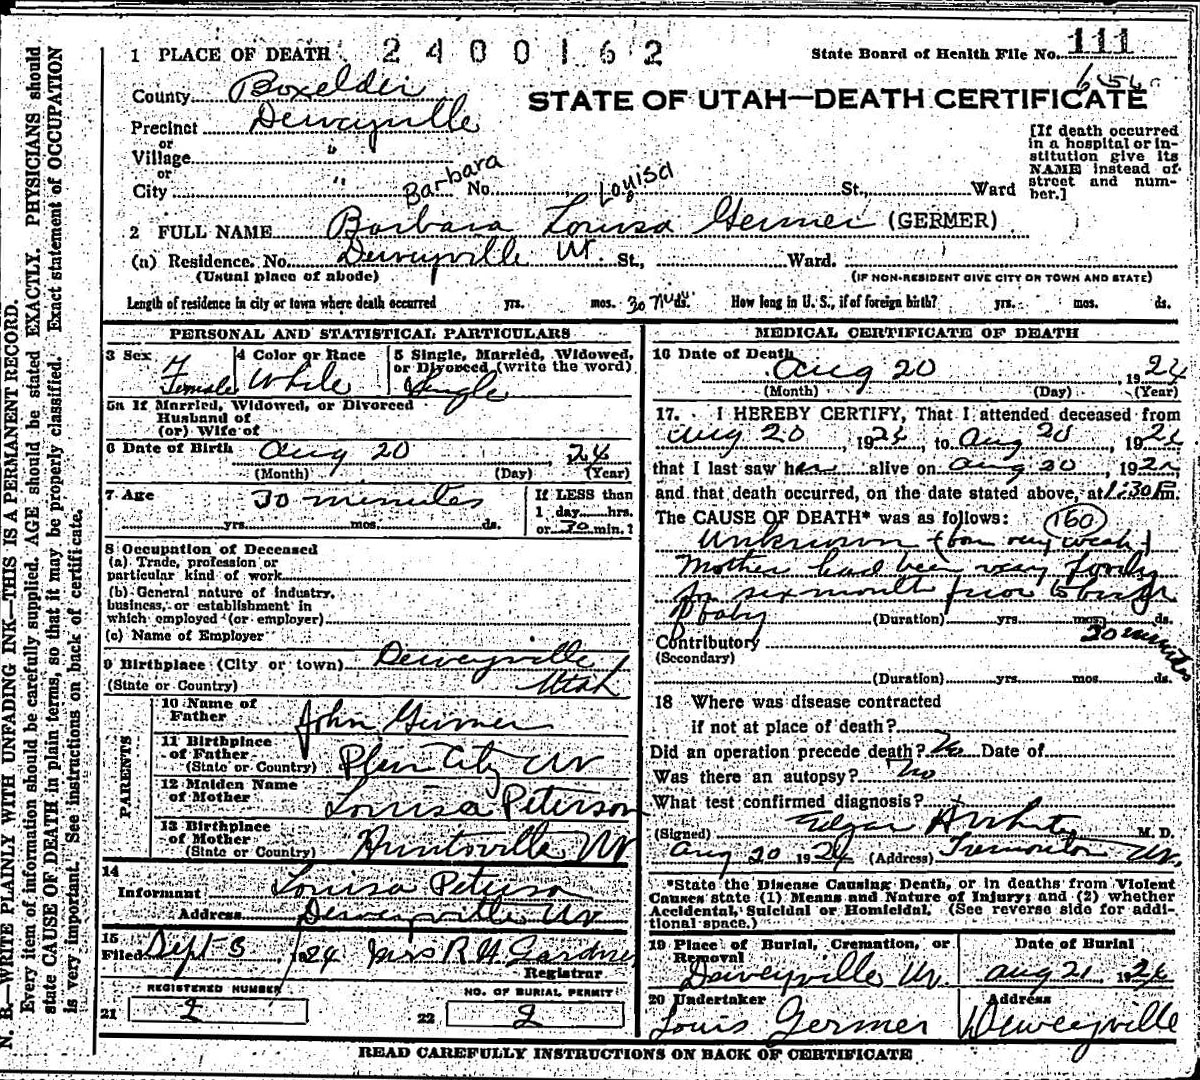 1 PLACE OF DEATH 2400162 State Board of Health File No. 111
County Boxelder
STATE OF UTAH—DEATH CERTIFICATE
Precinct Deweyville
or
Village "
or
City " No. St., Ward
Barbara Louisa
[If death occurred
in a hospital or in-
stitution give its
NAME instead of
street and num-
ber.]
2 FULL NAME Barbara Louisa Germer (GERMER)
(a) Residence. No. Deweyville Ut. St., Ward.
(Usual place of abode) (IF NON-RESIDENT GIVE CITY OR TOWN AND STATE)
Length of residence in city or town where death occurred yrs. mos. 30 ds. How long in U. S., if of foreign birth? yrs. mos. ds.
PERSONAL AND STATISTICAL PARTICULARS
3 Sex Female
4 Color or Race White
5 Single, Married, Widowed,
or Divorced (write the word)
Single
5a If Married, Widowed, or Divorced
Husband of
(or) Wife of
6 Date of Birth Aug 20, 24
(Month) (Day) (Year)
7 Age 30 minutes
yrs. mos. ds.
If LESS than
1 day hrs.
or 30 min.?
8 Occupation of Deceased
(a) Trade, profession or
particular kind of work
(b) General nature of industry,
business, or establishment in
which employed (or employer)
(c) Name of Employer
9 Birthplace (City or town) Deweyville
(State or Country) Utah
PARENTS
10 Name of
Father John Germer
11 Birthplace
of Father
(State or Country) Plain City Ut
12 Maiden Name
of Mother Louisa Peterson
13 Birthplace
of Mother
(State or Country) Huntsville Ut
14
Informant Louisa Peterson
Address Deweyville Ut
15
Filed Sept 3, 1924 Mrs R H Gardner
Registrar
REGISTERED NUMBER
21 2
NO. OF BURIAL PERMIT
22 2
MEDICAL CERTIFICATE OF DEATH
16 Date of Death
Aug 20, 1924
(Month) (Day) (Year)
17. I HEREBY CERTIFY, That I attended deceased from
Aug 20, 1924 to Aug 20, 1924
that I last saw her alive on Aug 20, 1924,
and that death occurred, on the date stated above, at 1:30 Pm.
The CAUSE OF DEATH* was as follows: (160)
Unknown (born very weak)
Mother had been very poorly
for six month prior to birth
of baby
(Duration) yrs. mos. ds.
30 minutes
Contributory
(Secondary)
(Duration) yrs. mos. ds.
18 Where was disease contracted
if not at place of death?
Did an operation precede death? No Date of
Was there an autopsy? No
What test confirmed diagnosis?
(Signed) Edgar White M. D.
Aug 20 1924 (Address) Tremonton Ut.
*State the Disease Causing Death, or in deaths from Violent
Causes state (1) Means and Nature of Injury; and (2) whether
Accidental, Suicidal or Homicidal. (See reverse side for addi-
tional space.)
19 Place of Burial, Cremation, or
Removal
Deweyville Ut.
Date of Burial
Aug 21, 1924
20 Undertaker
Louis Germer
Address
Deweyville
READ CAREFULLY INSTRUCTIONS ON BACK OF CERTIFICATE
N. B.—WRITE PLAINLY WITH UNFADING INK—THIS IS A PERMANENT RECORD.
Every item of information should be carefully supplied. AGE should be stated EXACTLY. PHYSICIANS should
state CAUSE OF DEATH in plain terms, so that it may be properly classified. Exact statement of OCCUPATION
is very important. See instructions on back of certificate.